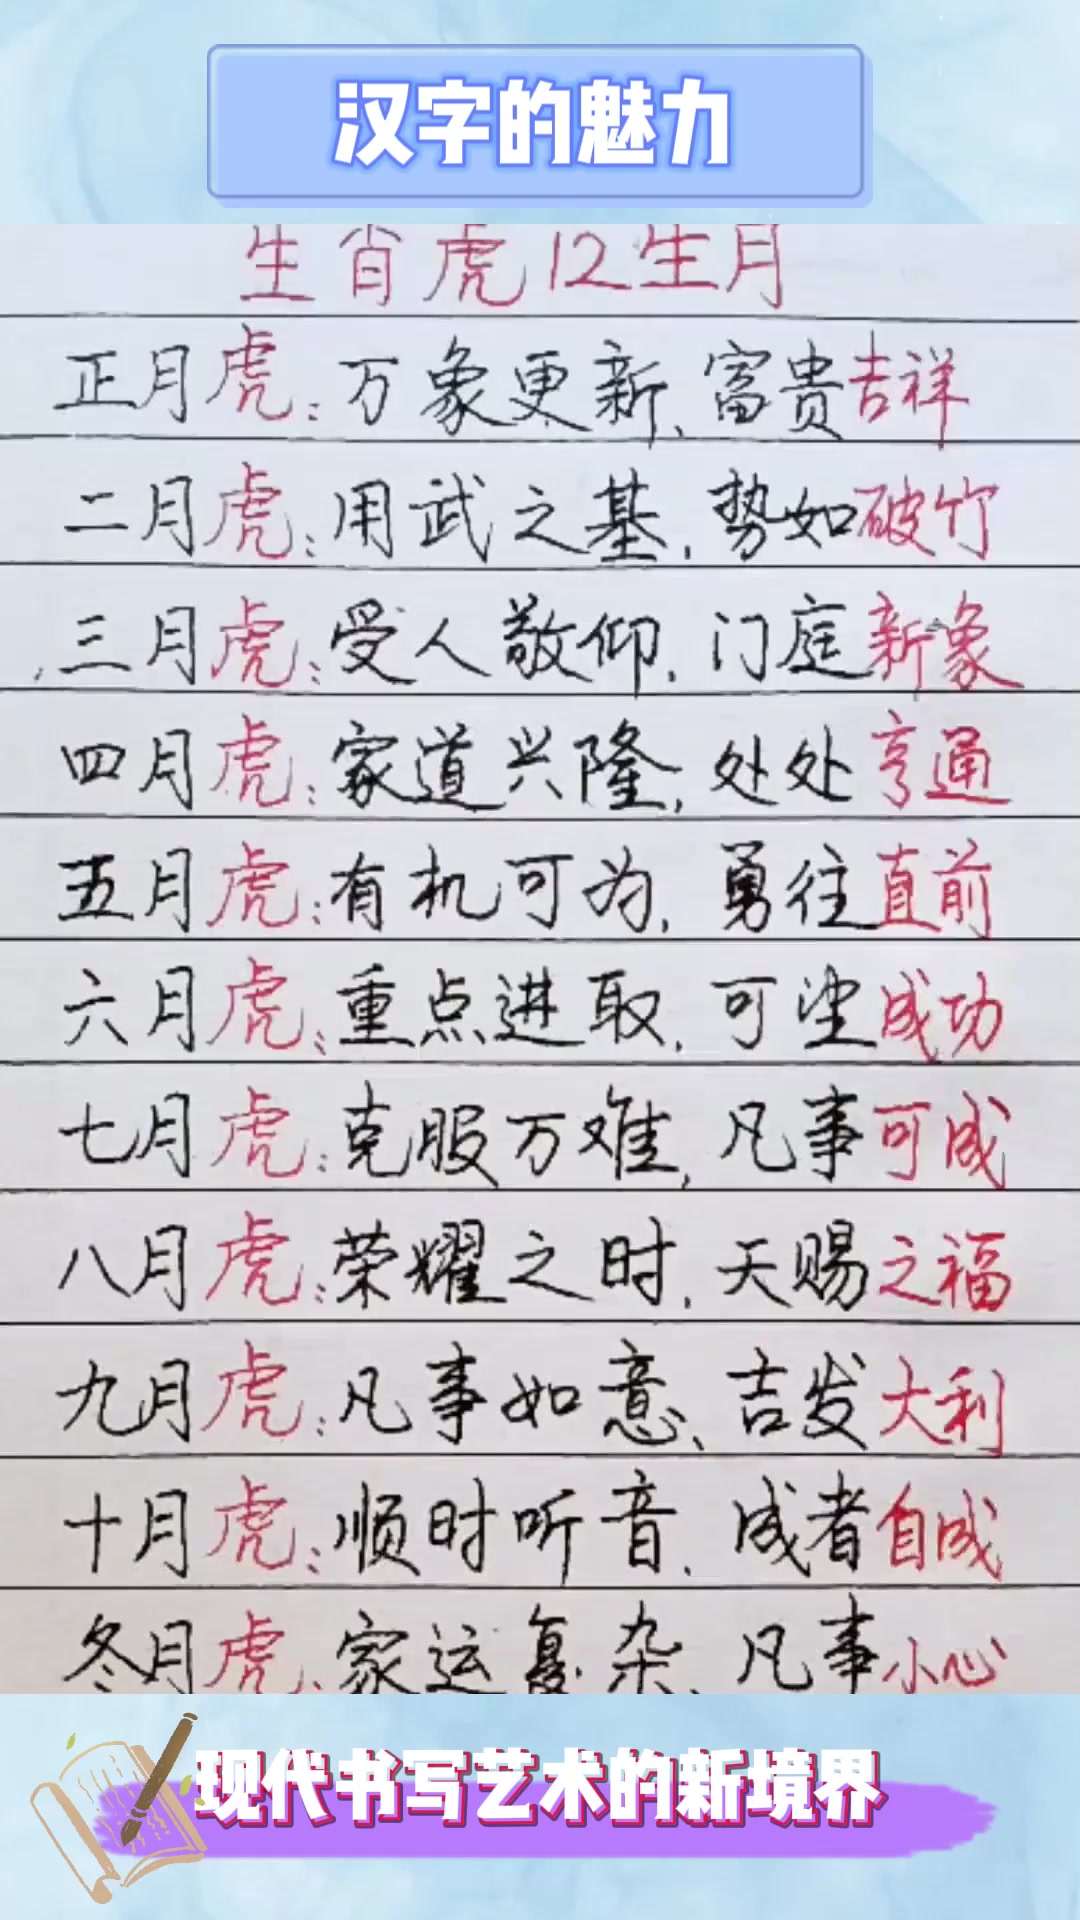 汉字的魅力
生肖虎12生月
正月虎:万象更新,富贵吉祥
二月虎:用武之基,势如破竹
三月虎:受人敬仰,门庭新象
四月虎:家道兴隆,处处亨通
五月虎:有机可为,勇往直前
六月虎:重点进取,可望成功
七月虎:克服万难,凡事可成
八月虎:荣耀之时,天赐之福
九月虎:凡事如意、吉发大利
十月虎:顺时听音、成者自成
冬月虎:家运复杂、凡事小心
现代书写艺术的新境界